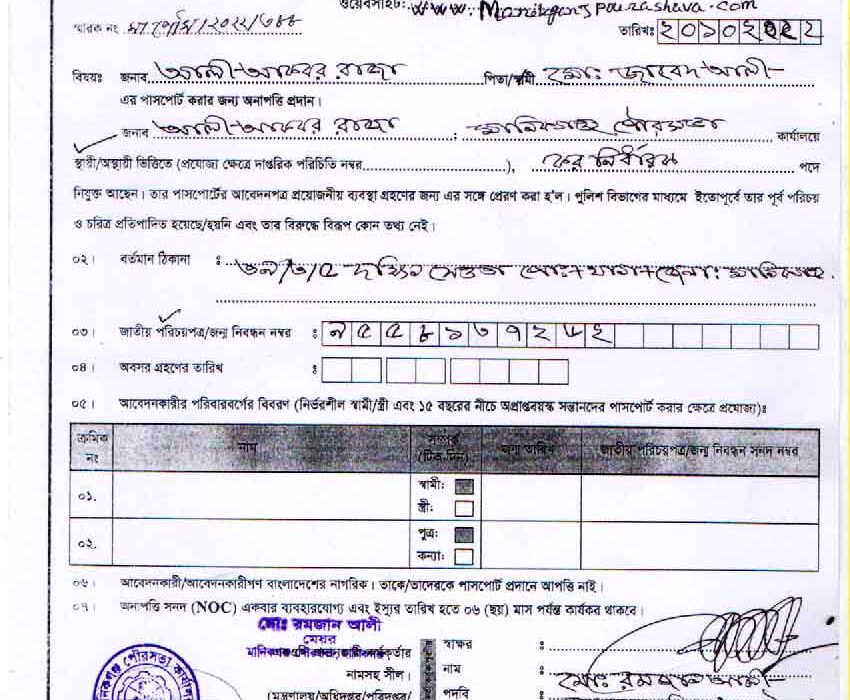 ওয়েবসাইট: www.Manikganjpourashava.com
স্মারক নং মা/পৌস/২০২২/৩৪৪ তারিখঃ ২০১০২০২২
বিষয়ঃ জনাব আলী-আকবর রাজা পিতা/স্বামী মোঃ জাবেদ আলী-
এর পাসপোর্ট করার জন্য অনাপত্তি প্রদান।
জনাব আলী-আকবর রাজা ; মানিকগঞ্জ পৌরসভা কার্যালয়ে
স্থায়ী/অস্থায়ী ভিত্তিতে (প্রযোজ্য ক্ষেত্রে দাপ্তরিক পরিচিতি নম্বর....................), কর নির্ধারক পদে
নিযুক্ত আছেন। তার পাসপোর্টের আবেদনপত্র প্রয়োজনীয় ব্যবস্থা গ্রহণের জন্য এর সঙ্গে প্রেরণ করা হ'ল। পুলিশ বিভাগের মাধ্যমে ইতোপূর্বে তার পূর্ব পরিচয়
ও চরিত্র প্রতিপাদিত হয়েছে/হয়নি এবং তার বিরুদ্ধে বিরূপ কোন তথ্য নেই।
০২। বর্তমান ঠিকানা : দক্ষিণ সেওতা পোঃ+থানা+জেলাঃ মানিকগঞ্জ.
০৩। জাতীয় পরিচয়পত্র/জন্ম নিবন্ধন নম্বর : ৯৫৫৪১৩৭২৪২
০৪। অবসর গ্রহণের তারিখ :
০৫। আবেদনকারীর পরিবারবর্গের বিবরণ (নির্ভরশীল স্বামী/স্ত্রী এবং ১৫ বছরের নীচে অপ্রাপ্তবয়স্ক সন্তানদের পাসপোর্ট করার ক্ষেত্রে প্রযোজ্য)ঃ
ক্রমিক নং নাম সম্পর্ক (টিক দিন) জন্ম তারিখ জাতীয় পরিচয়পত্র/জন্ম নিবন্ধন সনদ নম্বর
০১. স্বামী:
স্ত্রী:
০২. পুত্র:
কন্যা:
০৬। আবেদনকারী/আবেদনকারীগণ বাংলাদেশের নাগরিক। তাকে/তাদেরকে পাসপোর্ট প্রদানে আপত্তি নাই।
০৭। অনাপত্তি সনদ (NOC) একবার ব্যবহারযোগ্য এবং ইস্যুর তারিখ হতে ০৬ (ছয়) মাস পর্যন্ত কার্যকর থাকবে।
মোঃ রমজান আলী
মেয়র
স্বাক্ষর :
নামসহ সীল। নাম : মোঃ রমজান আলী-
(মন্ত্রণালয়/অধিদপ্তর/পরিদপ্তর/ পদবি :